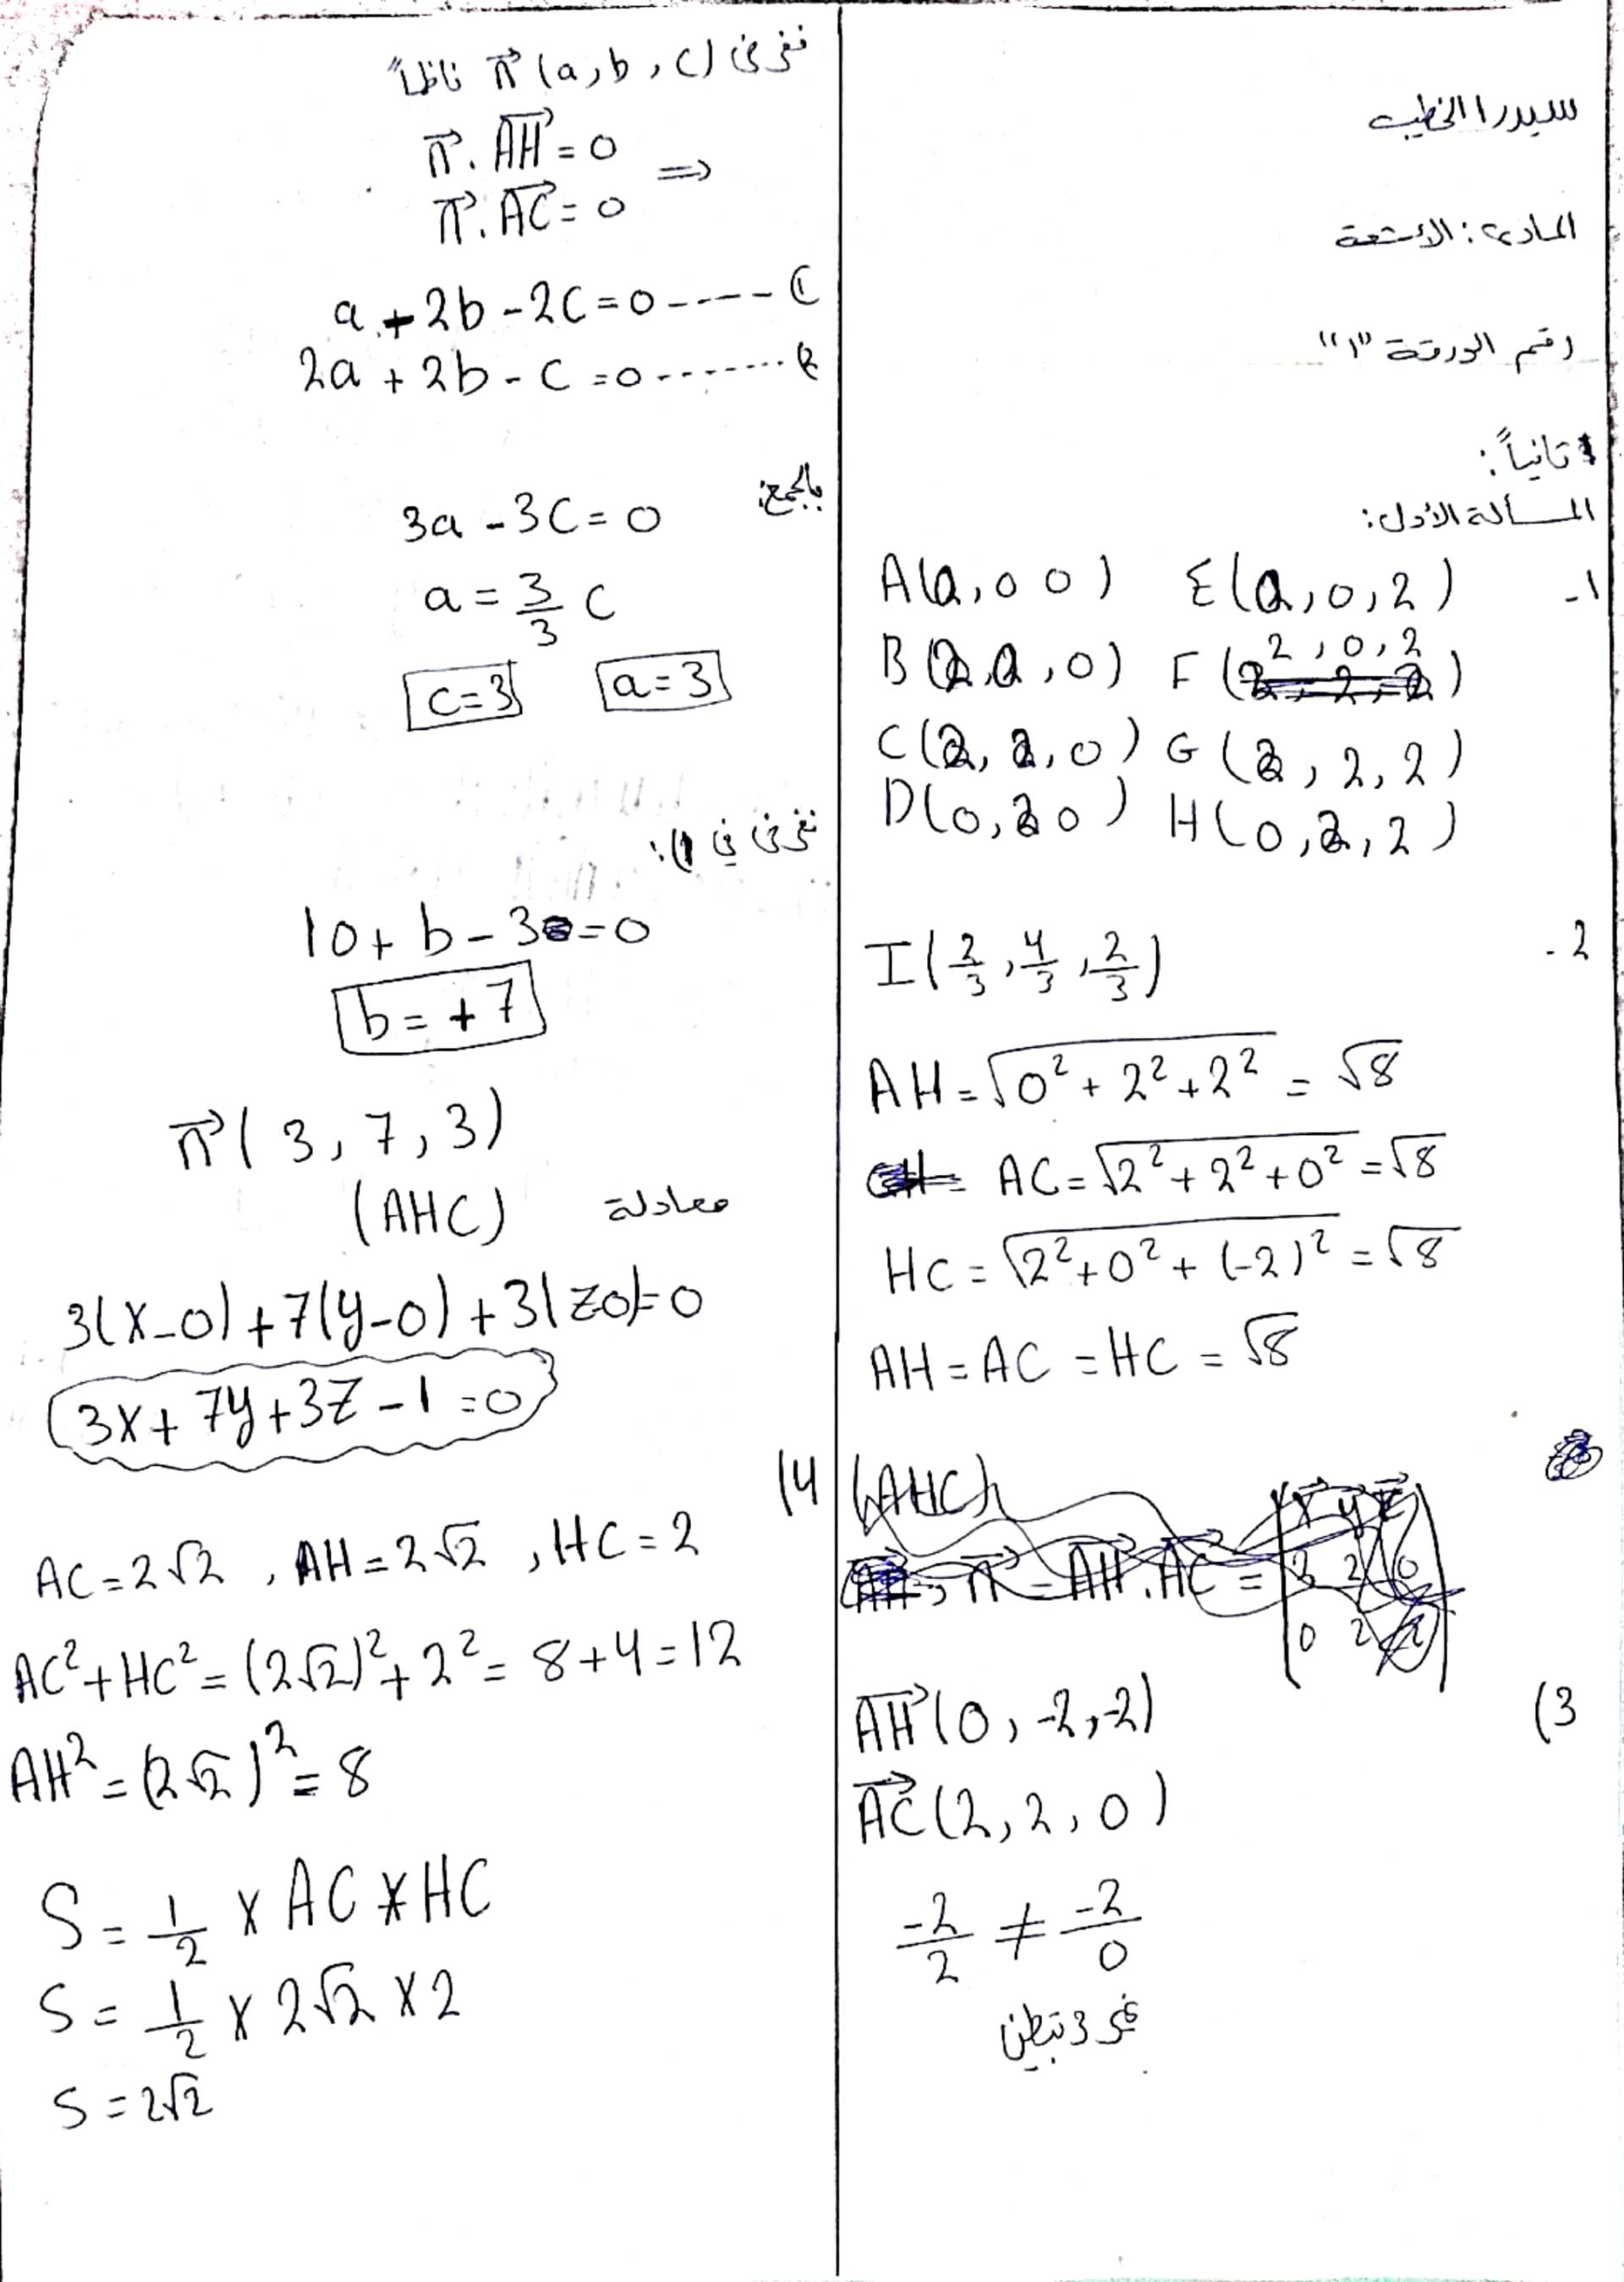 سيدرا الخطيب
المادة: الأشعة
رقم الورقة "1"
ثانياً:
المسألة الأولى:
1- A(0,0 0) E(0,0,2)
B(2,0,0) F(2,0,2)
C(2,2,0) G(2,2,2)
D(0,2 0) H(0,2,2)
2- I(2/3, 4/3, 2/3)
AH = √(0² + 2² + 2²) = √8
AC = √(2² + 2² + 0²) = √8
HC = √(2² + 0² + (-2)²) = √8
AH = AC = HC = √8
(AHC)
3) AH(0, -2, -2)
AC(2, 2, 0)
-2/2 ≠ -2/0
غير مرتبطين
نفرض n(a, b, c) ناظماً
n . AH = 0
⇒
n . AC = 0
a + 2b - 2c = 0 ----- (1
2a + 2b - c = 0 ------- (2
بالجمع:
3a - 3c = 0
a = 3/3 c
c = 3 a = 3
نعوض في (1:
10 + b - 3 = 0
b = +7
n(3, 7, 3)
معادلة (AHC)
3(x-0) + 7(y-0) + 3(z0) = 0
3x + 7y + 3z - 1 = 0
4) AC = 2√2 , AH = 2√2 , HC = 2
AC² + HC² = (2√2)² + 2² = 8 + 4 = 12
AH² = (2√2)² = 8
S = 1/2 × AC × HC
S = 1/2 × 2√2 × 2
S = 2√2